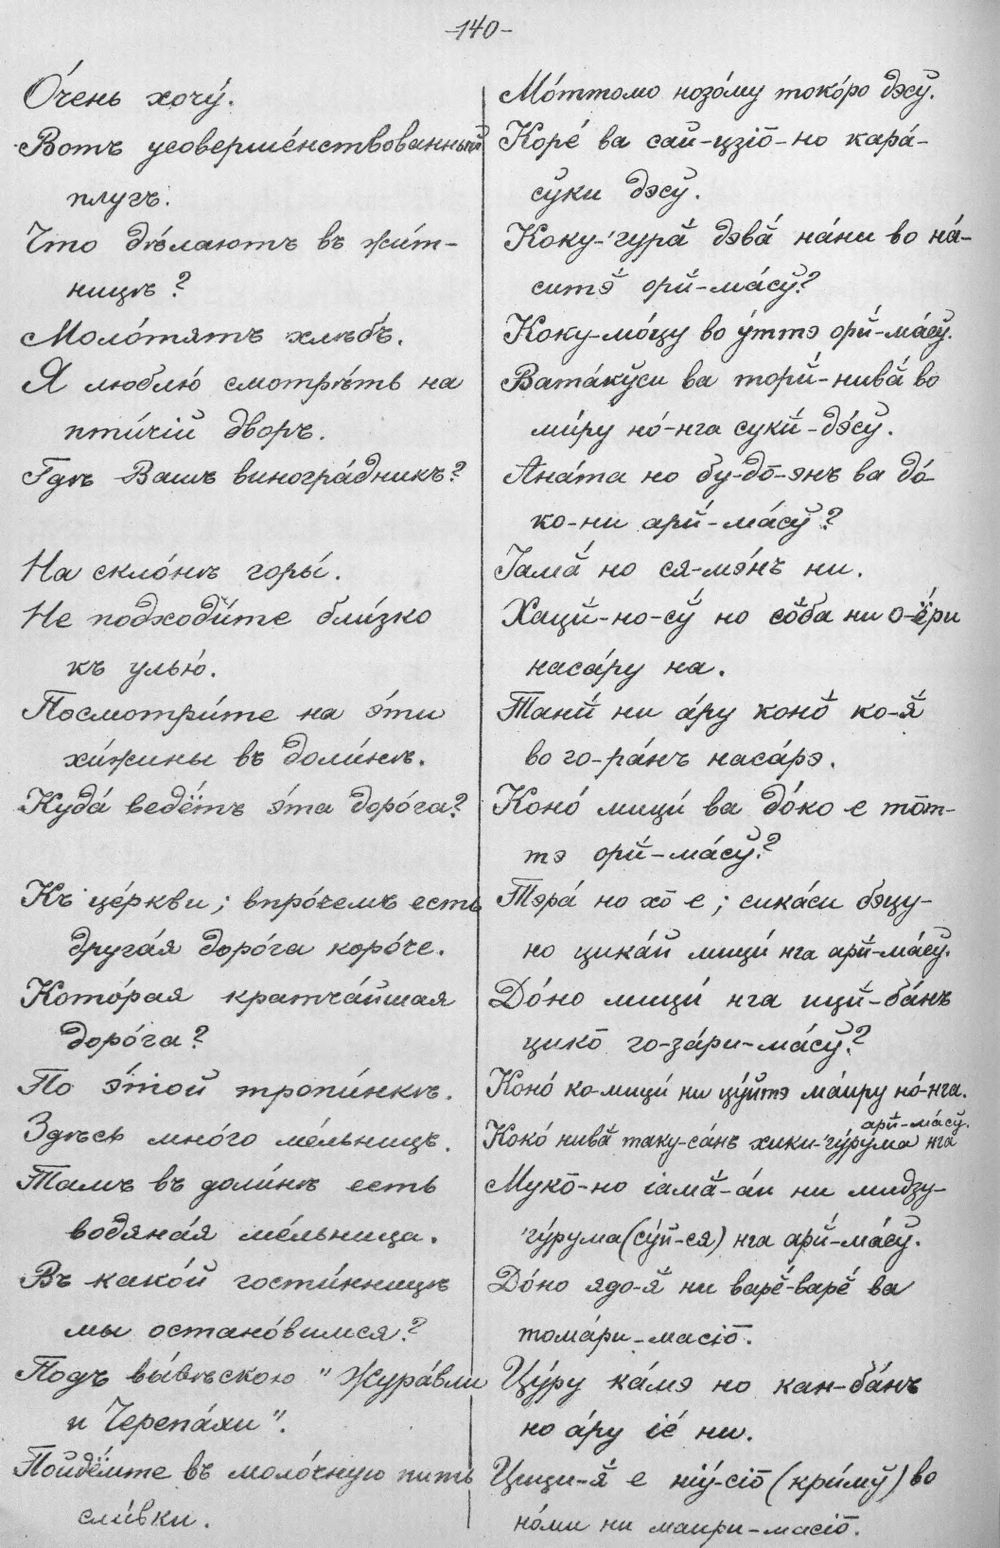 -140-
О́чень хочу́.
Вотъ усоверше́нствованный
плугъ.
Что дѣ́лаютъ въ жи́т-
ницѣ?
Моло́тятъ хлѣбъ.
Я люблю́ смотрѣ́ть на
пти́чій дворъ.
Гдѣ Вашъ виногра́дникъ?
На скло́нѣ горы́.
Не подходи́те бли́зко
къ улью́.
Посмотри́те на э́ти
хи́жины въ доли́нѣ.
Куда́ ведётъ э́та доро́га?
Къ це́ркви; впро́чемъ есть
друга́я доро́га коро́че.
Кото́рая кратча́йшая
доро́га?
По э́той тропи́нкѣ.
Здѣсь мно́го ме́льницъ.
Тамъ въ доли́нѣ есть
водяна́я ме́льница.
Въ како́й гости́нницѣ
мы остано́вимся?
Подъ вы́вѣскою "Жура́вли
и Черепа́хи".
Пойдёмте въ моло́чную пить
сли́вки.
Мо́ттомо нозо́му токо́ро дэсў.
Коре́ ва сай-цзіō-но кара́-
сўки дэсў.
Коку-'гурӑ́ дэвӑ́ на́ни во на́-
ситэ̆́ орй́-ма́сў?
Коку-мо́цу во у́ттэ орй́-ма́сў.
Вата́кўси ва торй́-нивӑ́ во
ми́ру но́-нга сукй́-дэ́сў.
Ана́та но бу-дō-энъ ва до́-
ко-ни арй́-ма́сў?
Іамӑ́ но ся-мэ́нъ ни.
Хацй́-но-сў́ но со̆́ба ни о-ё́ри
наса́ру на.
Танй́ ни а́ру коно̆́ ко-я̆́
во го-ра́нъ наса́рэ.
Коно́ мици́ ва до́ко е тōт-
тэ орй́-ма́сў?
Тэра́ но хō е; сика́си бэцу-
но цика́й мици́ нга арй́-ма́сў.
До́но мици́ нга ицй́-ба́нъ
цикō го-за́ри-ма́сў?
Коно́ ко-мици́ ни цу́йтэ ма́иру но́-нга.
Коко́ нивӑ́ таку-са́нъ хики-'гу́ру́ма нга
арй́-ма́сў.
Мукō-но іамӑ́-а́и ни мидзу-
'гу́рума (су́й-ся) нга арй́-ма́сў.
До́но ядо-я̆́ ни варӗ́-варӗ́ ва
тома́ри-масіō.
Цу́ру ка́мэ но кан-ба́нъ
но а́ру іе́ ни.
Цици-я̆́ е ніу́-сіō (кри́мў) во
но́ми ни маири-масіō.